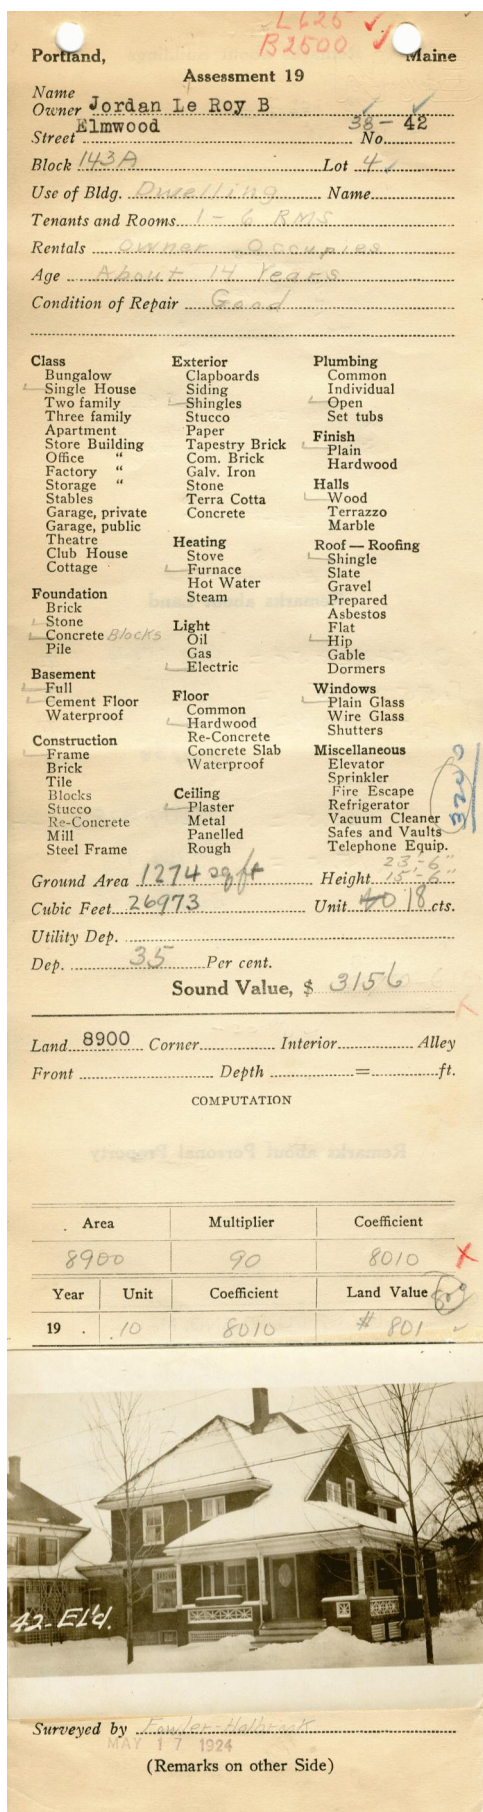 L625
B2500
Portland, Maine
Assessment 19
Name
Owner Jordan Le Roy B
Street Elmwood No. 38-42
Block 143A Lot 4
Use of Bldg. Dwelling Name
Tenants and Rooms 1-6 RMS
Rentals Owner Occupies
Age About 14 Years
Condition of Repair Good
Class
Bungalow
Single House
Two family
Three family
Apartment
Store Building
Office "
Factory "
Storage "
Stables
Garage, private
Garage, public
Theatre
Club House
Cottage
Foundation
Brick
Stone
Concrete Blocks
Pile
Basement
Full
Cement Floor
Waterproof
Construction
Frame
Brick
Tile
Blocks
Stucco
Re-Concrete
Mill
Steel Frame
Exterior
Clapboards
Siding
Shingles
Stucco
Paper
Tapestry Brick
Com. Brick
Galv. Iron
Stone
Terra Cotta
Concrete
Heating
Stove
Furnace
Hot Water
Steam
Light
Oil
Gas
Electric
Floor
Common
Hardwood
Re-Concrete
Concrete Slab
Waterproof
Ceiling
Plaster
Metal
Panelled
Rough
Plumbing
Common
Individual
Open
Set tubs
Finish
Plain
Hardwood
Halls
Wood
Terrazzo
Marble
Roof — Roofing
Shingle
Slate
Gravel
Prepared
Asbestos
Flat
Hip
Gable
Dormers
Windows
Plain Glass
Wire Glass
Shutters
Miscellaneous
Elevator
Sprinkler
Fire Escape
Refrigerator
Vacuum Cleaner
Safes and Vaults
Telephone Equip.
3200
23'-6"
Ground Area 1274 sq ft Height 15'-6"
Cubic Feet 26973 Unit 40 18 cts.
Utility Dep.
Dep. 35 Per cent.
Sound Value, $ 3156
Land 8900 Corner Interior Alley
Front Depth = ft.
COMPUTATION
Remarks about Personal Property
Area Multiplier Coefficient
8900 90 8010
Year Unit Coefficient Land Value 800
19 .10 8010 # 801
42-El'd.
Surveyed by Fowler-Holbrook
MAY 17 1924
(Remarks on other Side)